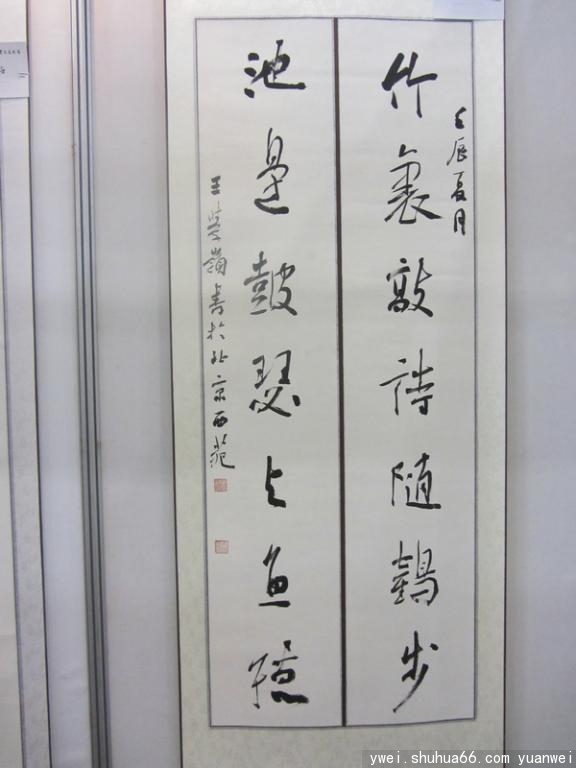 壬辰夏月
竹裏敲詩隨鶴步
池邊鼓瑟与魚聽
王嶺書於北京西苑
ywei.shuhua66.com yuanwei